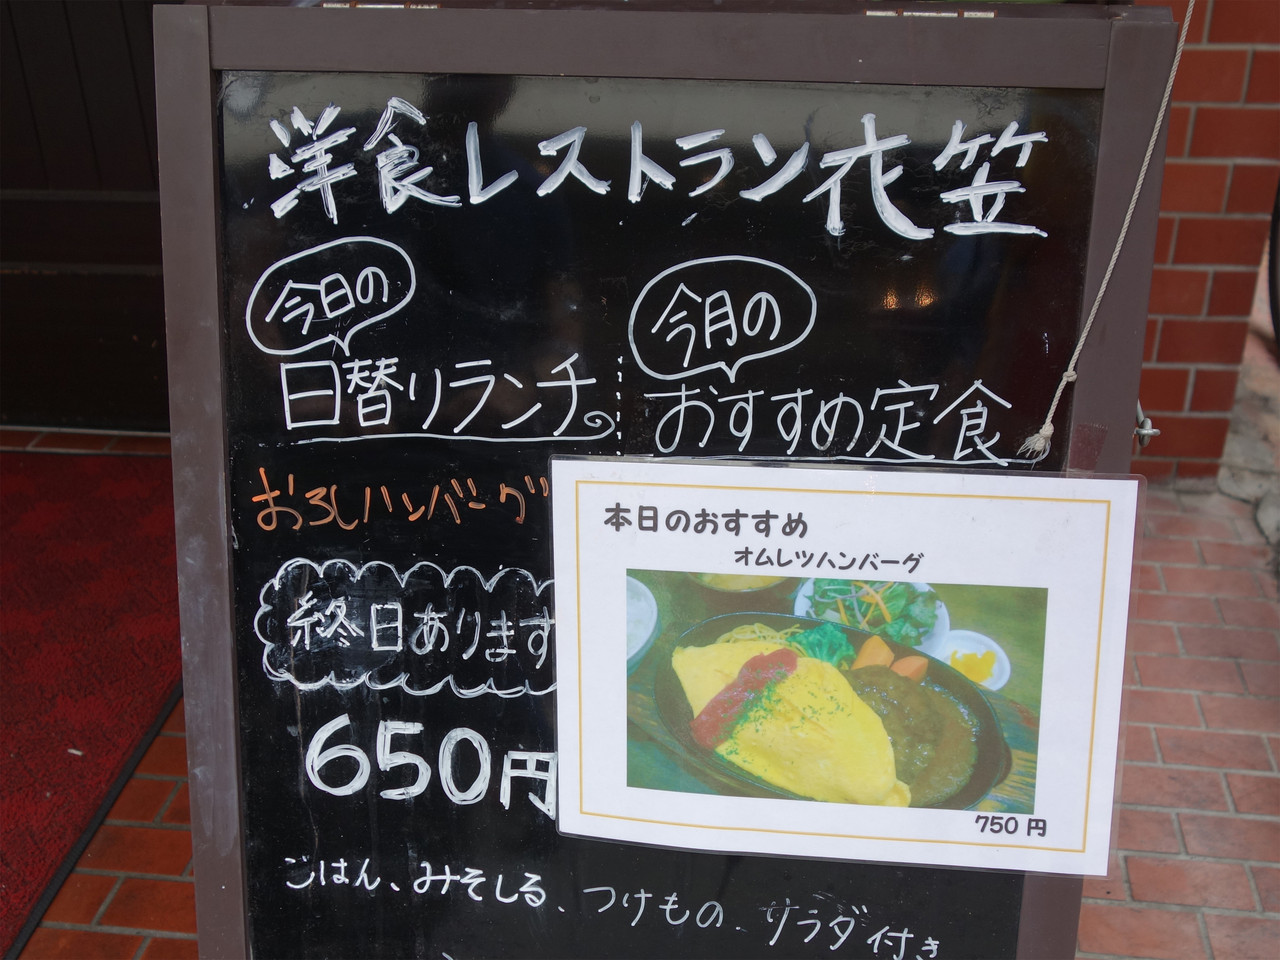 洋食レストラン花笠
今日の
日替りランチ
おろしハンバーグ
終日あります
650円
今月の
おすすめ定食
本日のおすすめ
オムレツハンバーグ
750円
ごはん、みそしる、つけもの、サラダ付き